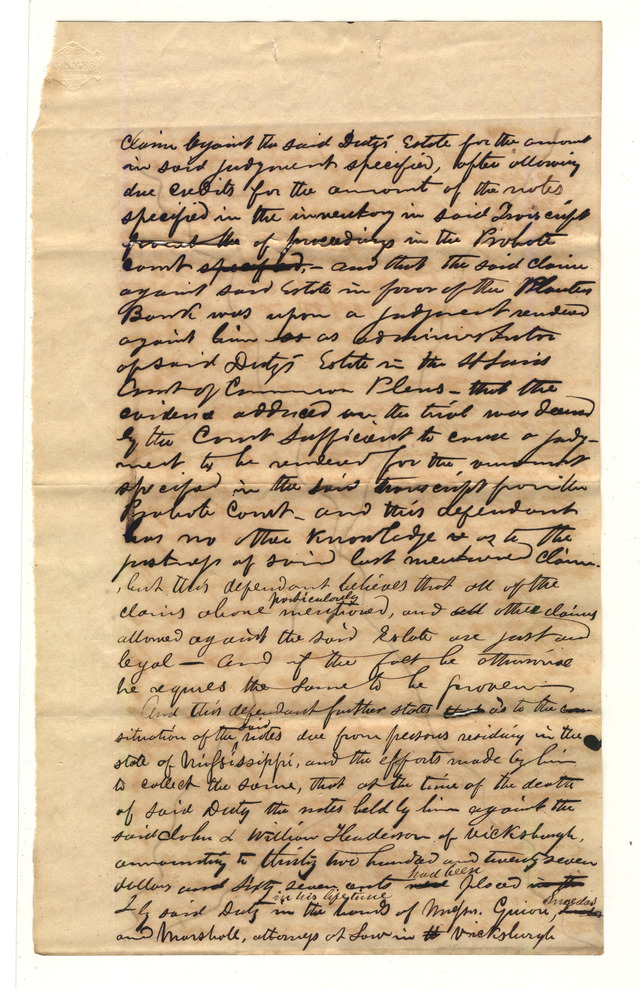 claim against the said Duty's Estate for the amount
in said judgment specified, after allowing
due credits for the amount of the notes
specified in the inventory in said Transcript
the of proceedings in the Probate
court specified, - and that the said claim
against said Estate in favor of the Planters
Bank was upon a judgment rendered
against him as as administrator
of said Duty's Estate in the St Louis
Court of Common Pleas - that the
evidence adduced on the trial was deemed
by the Court sufficient to cause a judg-
ment to be rendered for the amount
specified in the said transcript from the
Probate Court - and this defendant
has no other knowledge as to the
justness of said last mentioned claim.
, but this defendant believes that all of the
particularly
claims above mentioned, and all other claims
allowed against the said Estate are just and
legal - And if the fact be otherwise
he requires the same to be proven
And this defendant further states as to the
said
situation of the notes due from persons residing in the
state of Mississippi, and the efforts made by him
to collect the same, that at the time of the death
of said Duty the notes held by him against the
said John & William Henderson of Vicksburgh,
ammounting to thirty two hundred and twenty seven
had been
dollars and sixty seven cents placed in the
in his lifetime
by said Duty in the hands of Messrs. Guion,
and Marshall, attorneys at Law in Vicksburgh